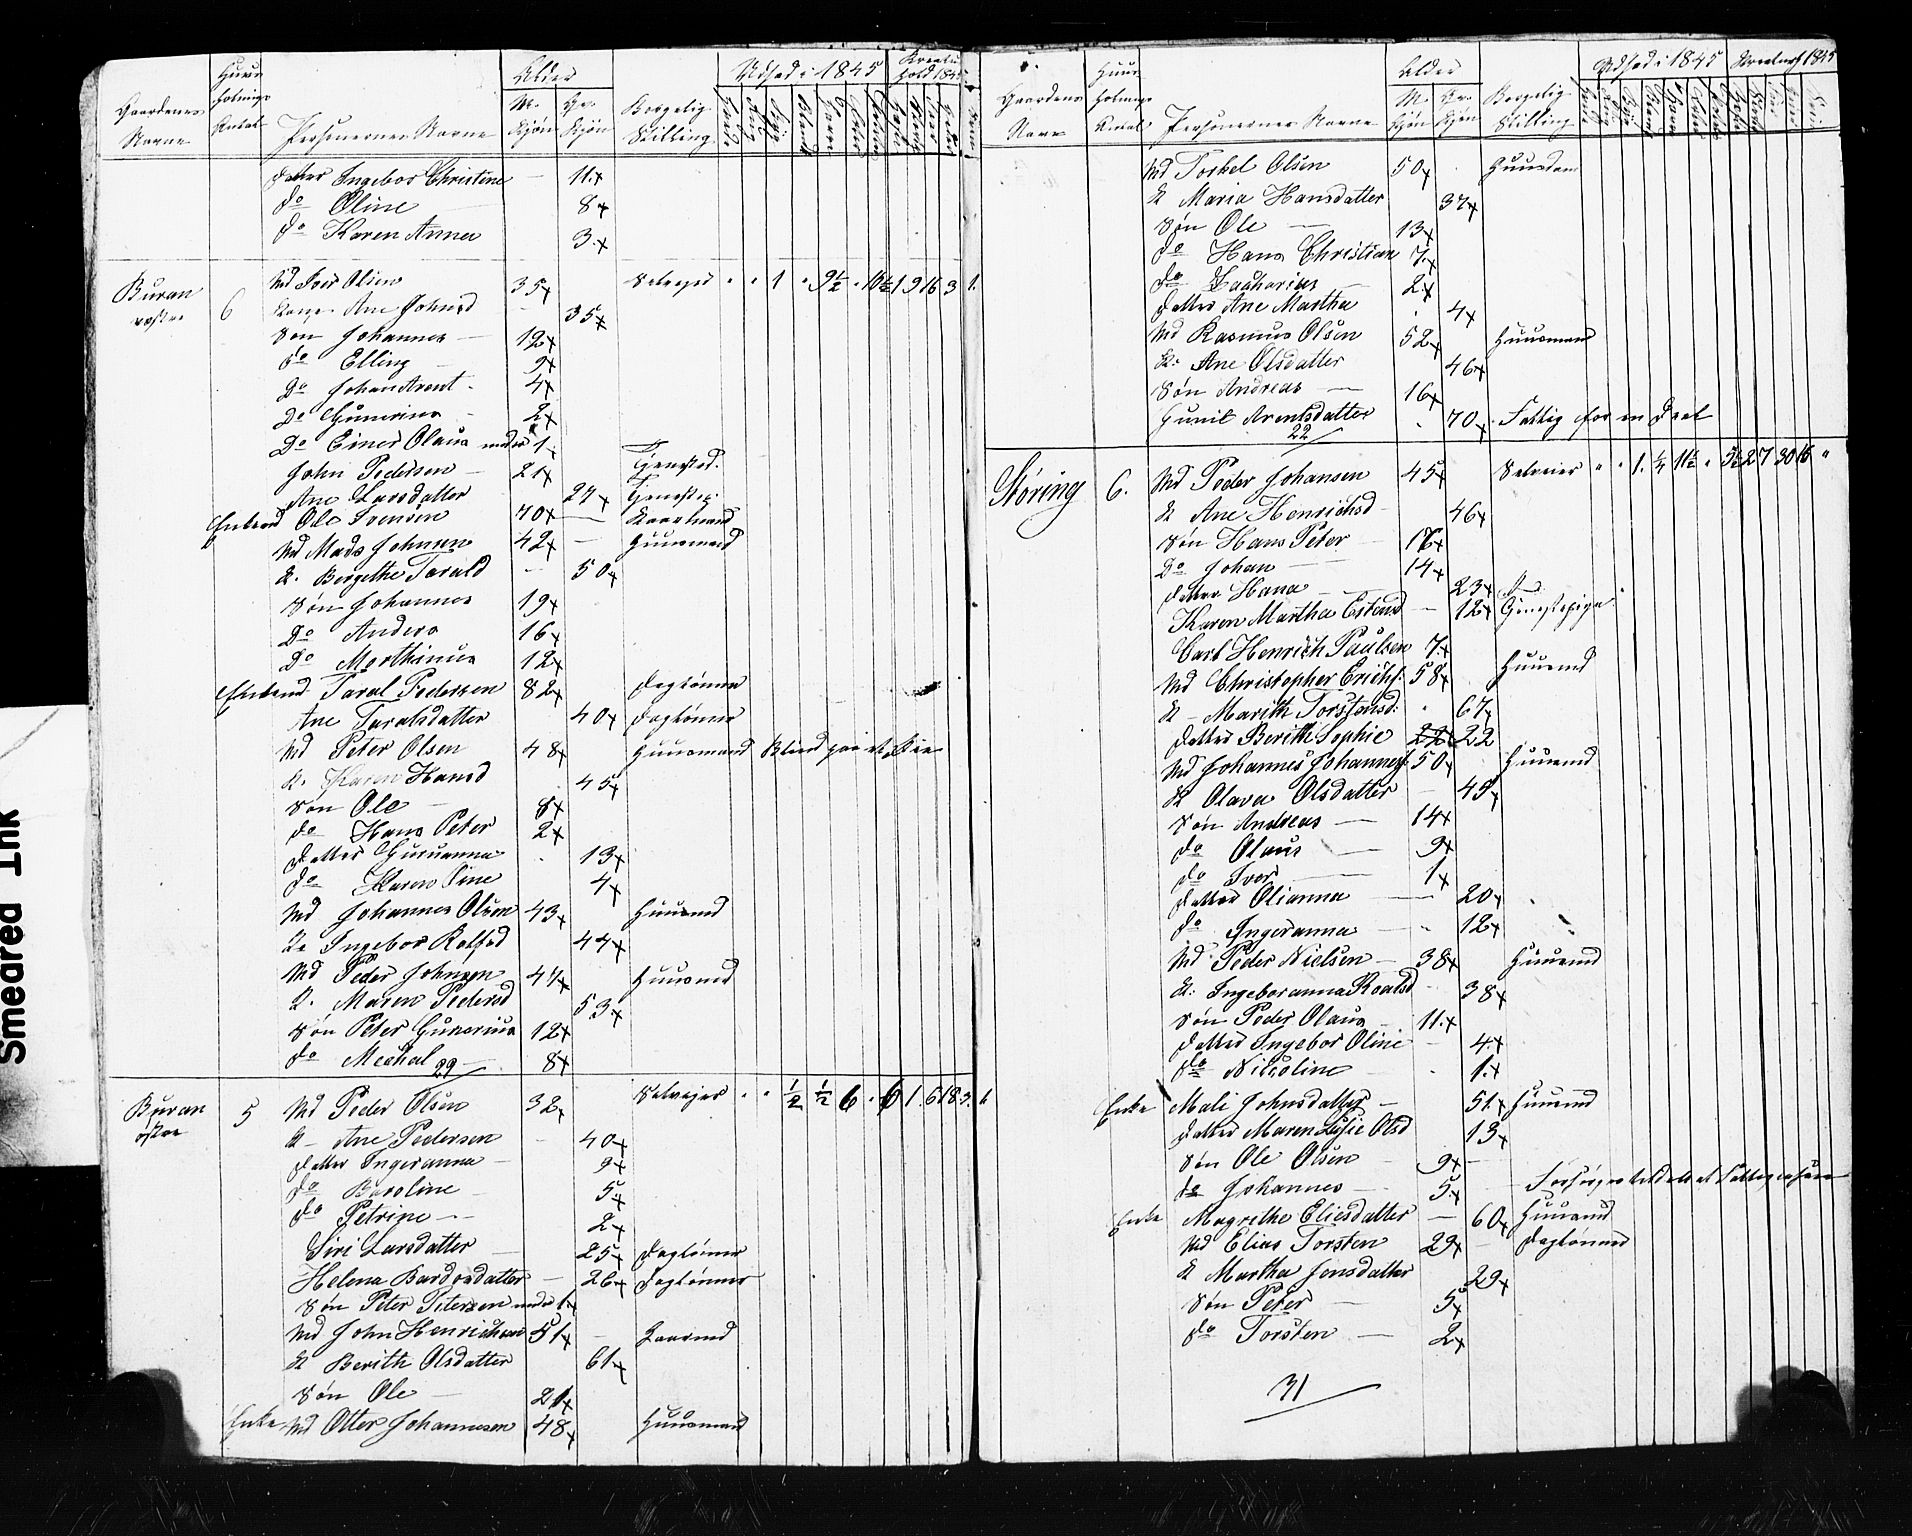 Gaardenes Navne
Huus holnings Antal
Personernes Navne
Alder
M. Kjön
Qv. Kjön
Borgelig Stilling
Udsæd i 1845
Datter Ingebor Christine — 11.x
do Oline 8x
do Karen Anna 3.x
Buran vestre 6 Md Iver Olsen 35x Selvejer " " 1 " 9½ " 10½ 1 9 16 3 1.
Kone Ane Johnsd 35x
Søn Johannes — 12x
do Elling 9x
Do Johan Arent 4x
Do Gunerius 2x
Do Einer Olaus under 1.
John Pedersen — 21x Tjenested.
Ane Larsdatter 27x Tjenestep.
Enkemd Ole Svensen 70x — Kaarmand
Md Mads Johnsen 42x — Huusmand
K. Bergethe Tarald — 50x
Søn Johannes 19x
Do Anders 16x
Do Morthinus 12x
Enkemd Taral Pedersen 82x Daglønner
Ane Taralsdatter 40x Daglønner
Md Peter Olsen 48x Huusmand Blind paa et Øie
K. Karen Hansd 45x
Søn Ole — 8x
do Hans Peter 2x
Datter Guruanna 13x
do Karen Sine 4x
Md Johannes Olsen 43x Huusmd
K. Ingebor Rolfsd 44x
Md Peder Johnsen 44x Huusmd
K. Maren Pedersd 53x
Søn Peter Gunerius 12x
do Mechal 8x
29
Buran østre 5 Md Peder Olsen 32x Selvejer " " ½ ½ 6 " 6 1 6 18 3. 1.
K — Ane Pedersen 40x
Datter Ingeranna — 9x
do Baroline 5x
do Petrine — 2x
Siri Larsdatter 25x Daglønner
Helena Bardosdatter — 26x Daglønner
Søn Peter Petersen under 1x
Md John Henrichsen 51x — Kaarmd
K Berith Olsdatter 61x
Søn Ole — 21x
Enke Md Otter Johannesen 48x Huusmand
Gaardens Navn
Huus holnings Antal
Personernes Navne
Alder
M. Kjön
Qv. Kjön
Borgelig Stilling
Udsæd i 1845
Md Torkel Olsen 50x Huusdom
K Maria Hansdatter 37x
Søn Ole — 13x
do Hans Christian 7x
do Zacharias — 2x
Datter Ane Martha 4x
Md Rasmus Olsen 52x Huusmand
K. Ane Olsdatter 46x
Søn Andreas — 16x
Gunil Arentsdatter 70x. Fattig for en Deel
22
Støring 6. Md Peder Johansen 45x Selveier " " 1. ¼ 11½ " 5½ 2 7 30 16 "
K Ane Henrichsd 46x
Søn Hans Peter 17x
Do Johan — 14x
Datter Hana — 23x
Karen Martha Estensd — 12x Tjenestepige
Carl Henrich Paulsen 7x
Md Christopher Erichs. 58x Huusmd
K — Marith Torstensd. 67x
Datter Berith Sophie 22 22
Md Johannes Johannes. 50x Huusmd
K Olava Olsdatter — 45x
Søn Andreas — 14x
do Olaus — 9x
do Iver — 1x
Datter Olianna — 20x
do Ingeranna — 12x
Md Peder Nielsen — 38x Huusmd
K. Ingeboranna Roalsd 38x
Søn Peder Olaus 11.x
Datter Ingebor Oline — 4.x
do Nicoline 1.x
Enke Mali Johnsdatter — 51.x Huusmd
Datter Maren Lysie Olsd 13x
Søn Ole Olsen — 9x —
do Johannes — 5x
Enke Magrithe Eliesdatter — 60x Huusmd
Md Elias Torsten 29x — Daglønner
K Martha Jonsdatter 29x
Søn Peter — 5x
do Torsten — 2x
31
Smeared Ink